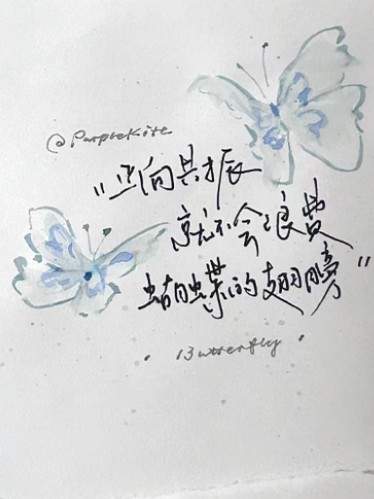 @PurpleKite
"正向共振
就不会浪费
蝴蝶的翅膀"
· Butterfly ·